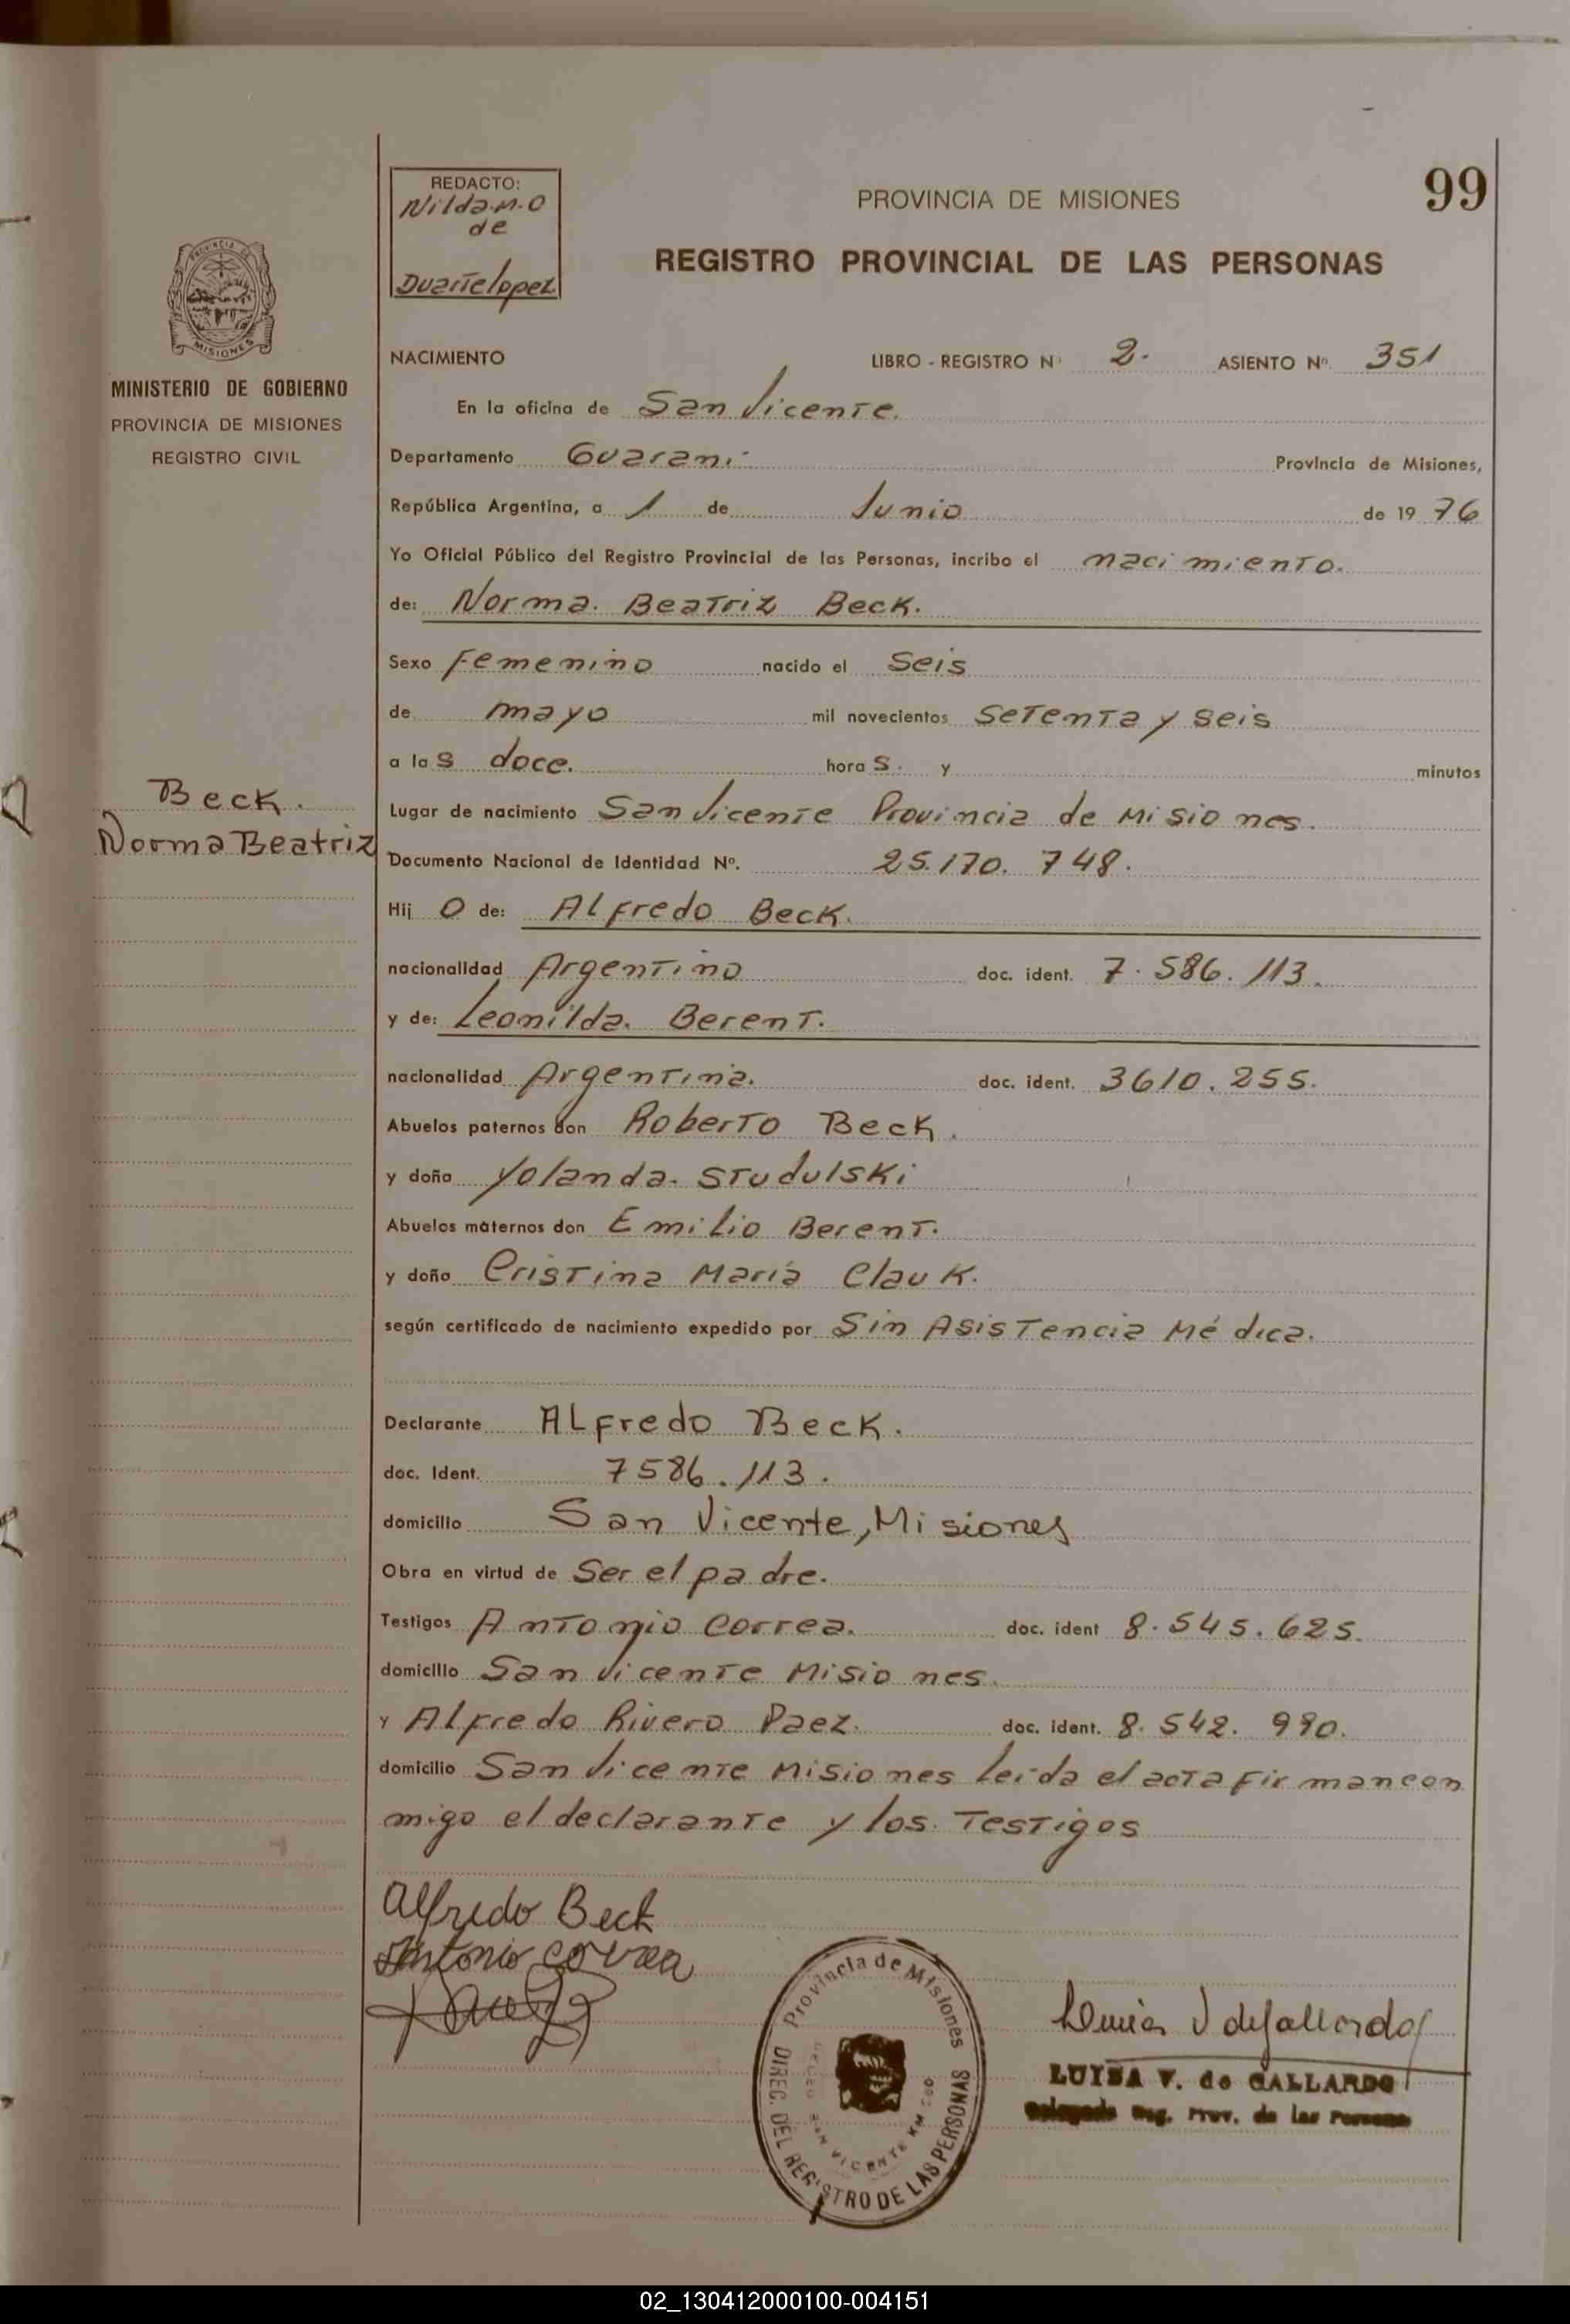 99
REDACTO:
Nilda M.O
de
Duarte lopez
PROVINCIA DE MISIONES
REGISTRO PROVINCIAL DE LAS PERSONAS
PROVINCIA DE
MISIONES
MINISTERIO DE GOBIERNO
PROVINCIA DE MISIONES
REGISTRO CIVIL
Beck.
Norma Beatriz
NACIMIENTO LIBRO - REGISTRO Nº 2. ASIENTO Nº. 351
En la oficina de San Vicente.
Departamento Guarani Provincia de Misiones,
República Argentina, a 1 de Junio de 1976
Yo Oficial Público del Registro Provincial de las Personas, incribo el nacimiento.
de: Norma. Beatriz Beck.
Sexo Femenino nacido el Seis
de mayo mil novecientos Setenta y Seis
a las doce. horas. y minutos
Lugar de nacimiento San Vicente Provincia de Misiones.
Documento Nacional de Identidad Nº. 25.170.748.
Hij O de: Alfredo Beck.
nacionalidad Argentino doc. ident. 7.586.113.
y de: Leonilda. Berent.
nacionalidad Argentina. doc. ident. 3610.255.
Abuelos paternos don Roberto Beck.
y doña Yolanda. Studulski
Abuelos maternos don Emilio Berent.
y doña Cristina María Clauk.
según certificado de nacimiento expedido por Sin Asistencia Médica.
Declarante Alfredo Beck.
doc. Ident. 7586.113.
domicilio San Vicente, Misiones
Obra en virtud de Ser el padre.
Testigos Antonio Correa. doc. ident 8.545.625.
domicilio San Vicente Misiones.
y Alfredo Rivero Paez. doc. ident. 8.542.990.
domicilio San Vicente Misiones Leída el acta Firman con
migo el declarante y los. Testigos
Alfredo Beck
Antonio correa
Provincia de Misiones
DIREC. DEL REGISTRO DE LAS PERSONAS
SAN VICENTE KM
V de Gallardo
LUISA V. de GALLARDO
Reg. Prov. de las
02_130412000100-004151